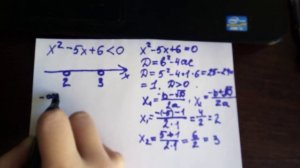 x²-5x+6<0
x
2 3
x²-5x+6=0
D=b²-4ac
D=5²-4·1·6=25-24=
=1, D>0
x₁=-b-√D/2a, x₂=-b+√D/2a
x₁=-(-5)-1/2·1=4/2=2
x₂=5+1/2·1=6/2=3